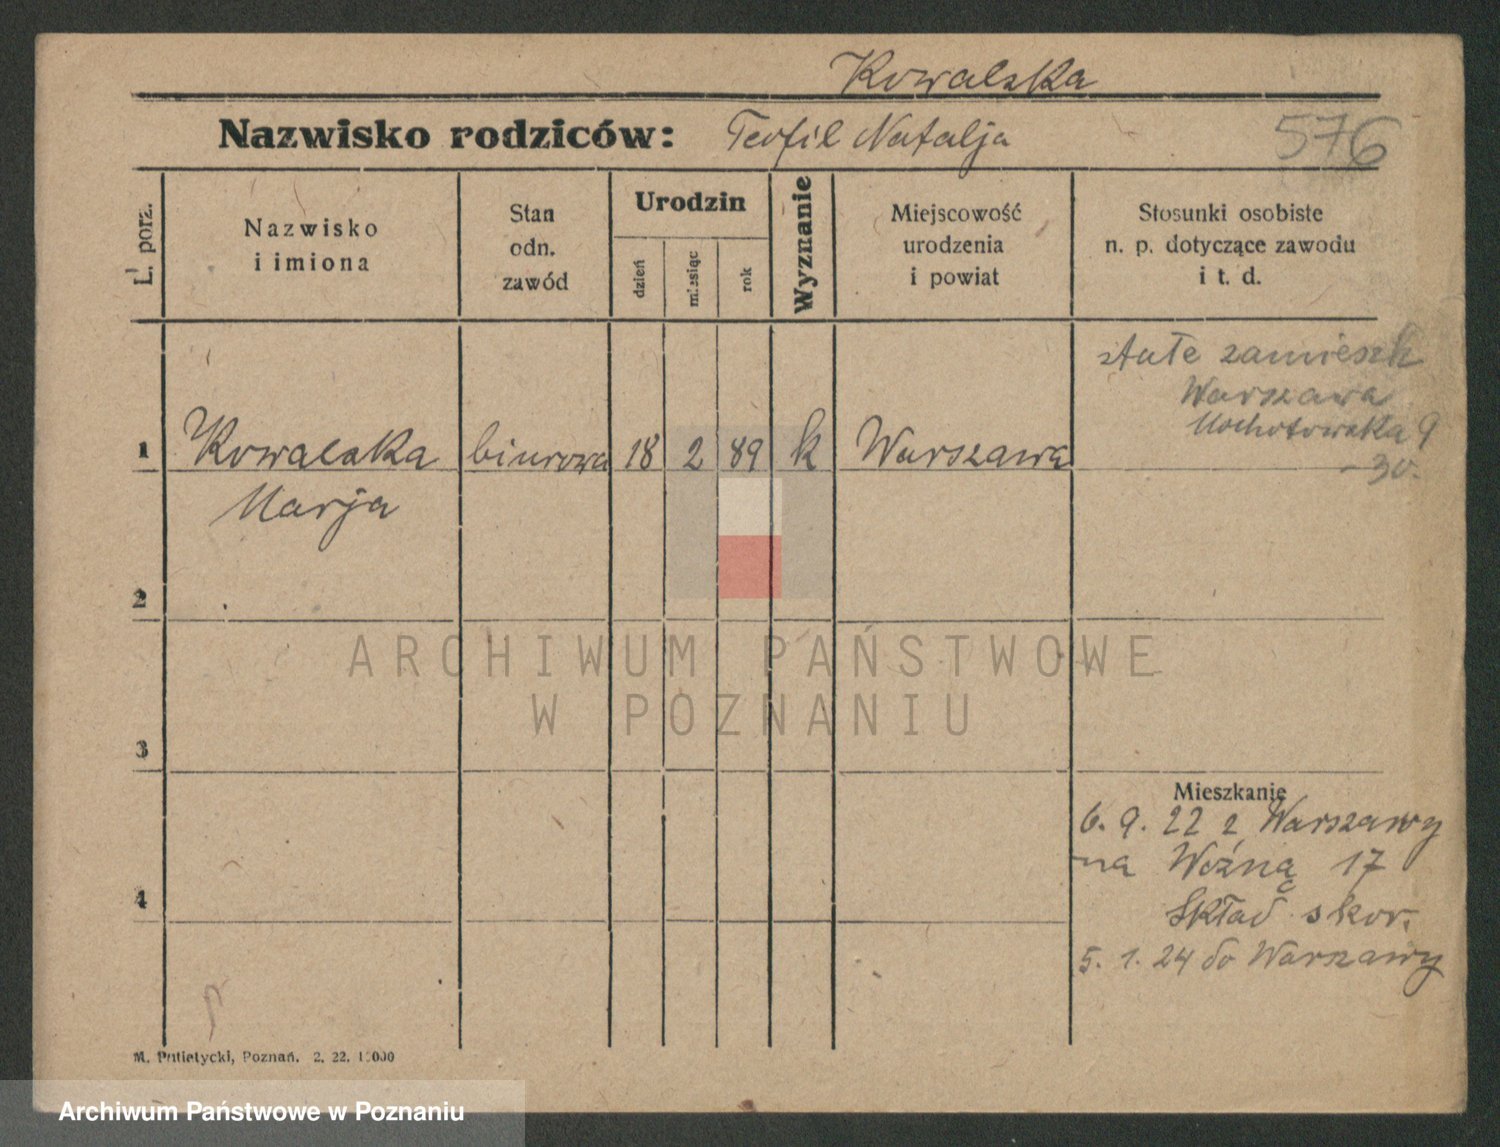 Kowalska
Nazwisko rodziców: Teofil Natalja 576
L. porz.
Nazwisko
i imiona
Stan
odn.
zawód
Urodzin
dzień
miesiąc
rok
Wyznanie
Miejscowość
urodzenia
i powiat
Stosunki osobiste
n. p. dotyczące zawodu
i t. d.
stałe zamieszk
Warszawa
Mochotowska 9
- 30.
1 Kowalska biurowa 18 2 89 k Warszawa
Marja
2
ARCHIWUM PAŃSTWOWE
W POZNANIU
3
Mieszkanie
6. 9. 22 z Warszawy
na Woźną 17
4
Skład skor.
5. 1. 24 do Warszawy
M. Putiatycki, Poznań. 2. 22. 1000
Archiwum Państwowe w Poznaniu